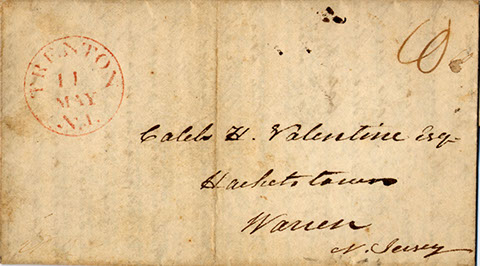 TRENTON
11
MAY
N.J.
6
Caleb H. Valentine Esq-
Hacketstown
Warren
N. Jersey